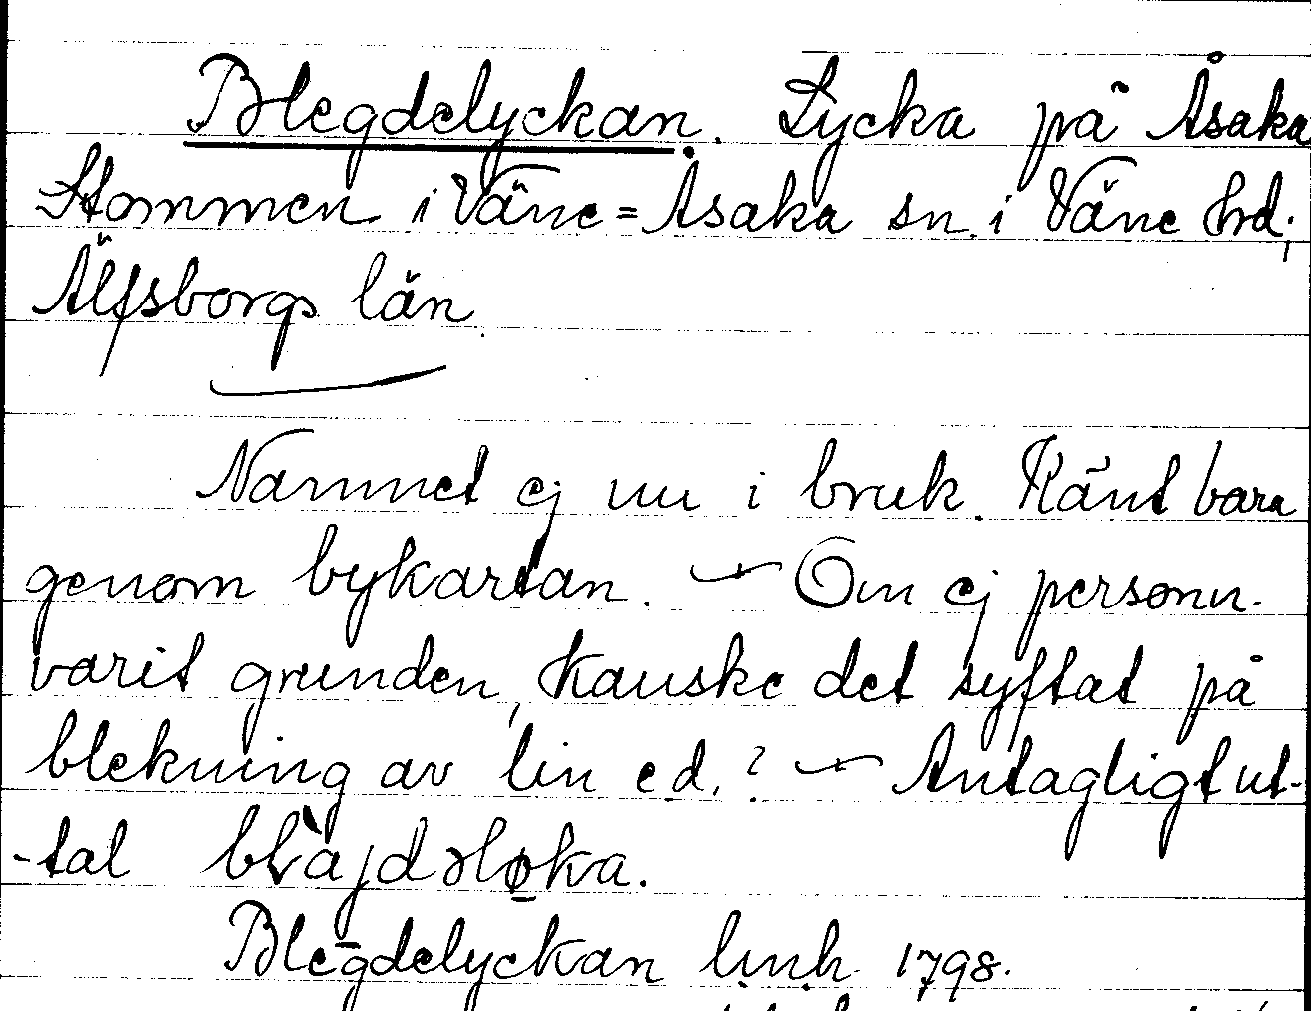 Blegdelyckan. Lycka på Åsaka
Stommen i Väne=Åsaka sn. i Väne hrd,
Älfsborgs län.
Namnet ej nu i bruk. Känt bara
genom bykartan. — Om ej personn.
varit grunden, kanske det syftat på
blekning av lin e.d.? — Antagligt ut-
-tal blàjdəløka.
Blegdelyckan l.n.h. 1798.